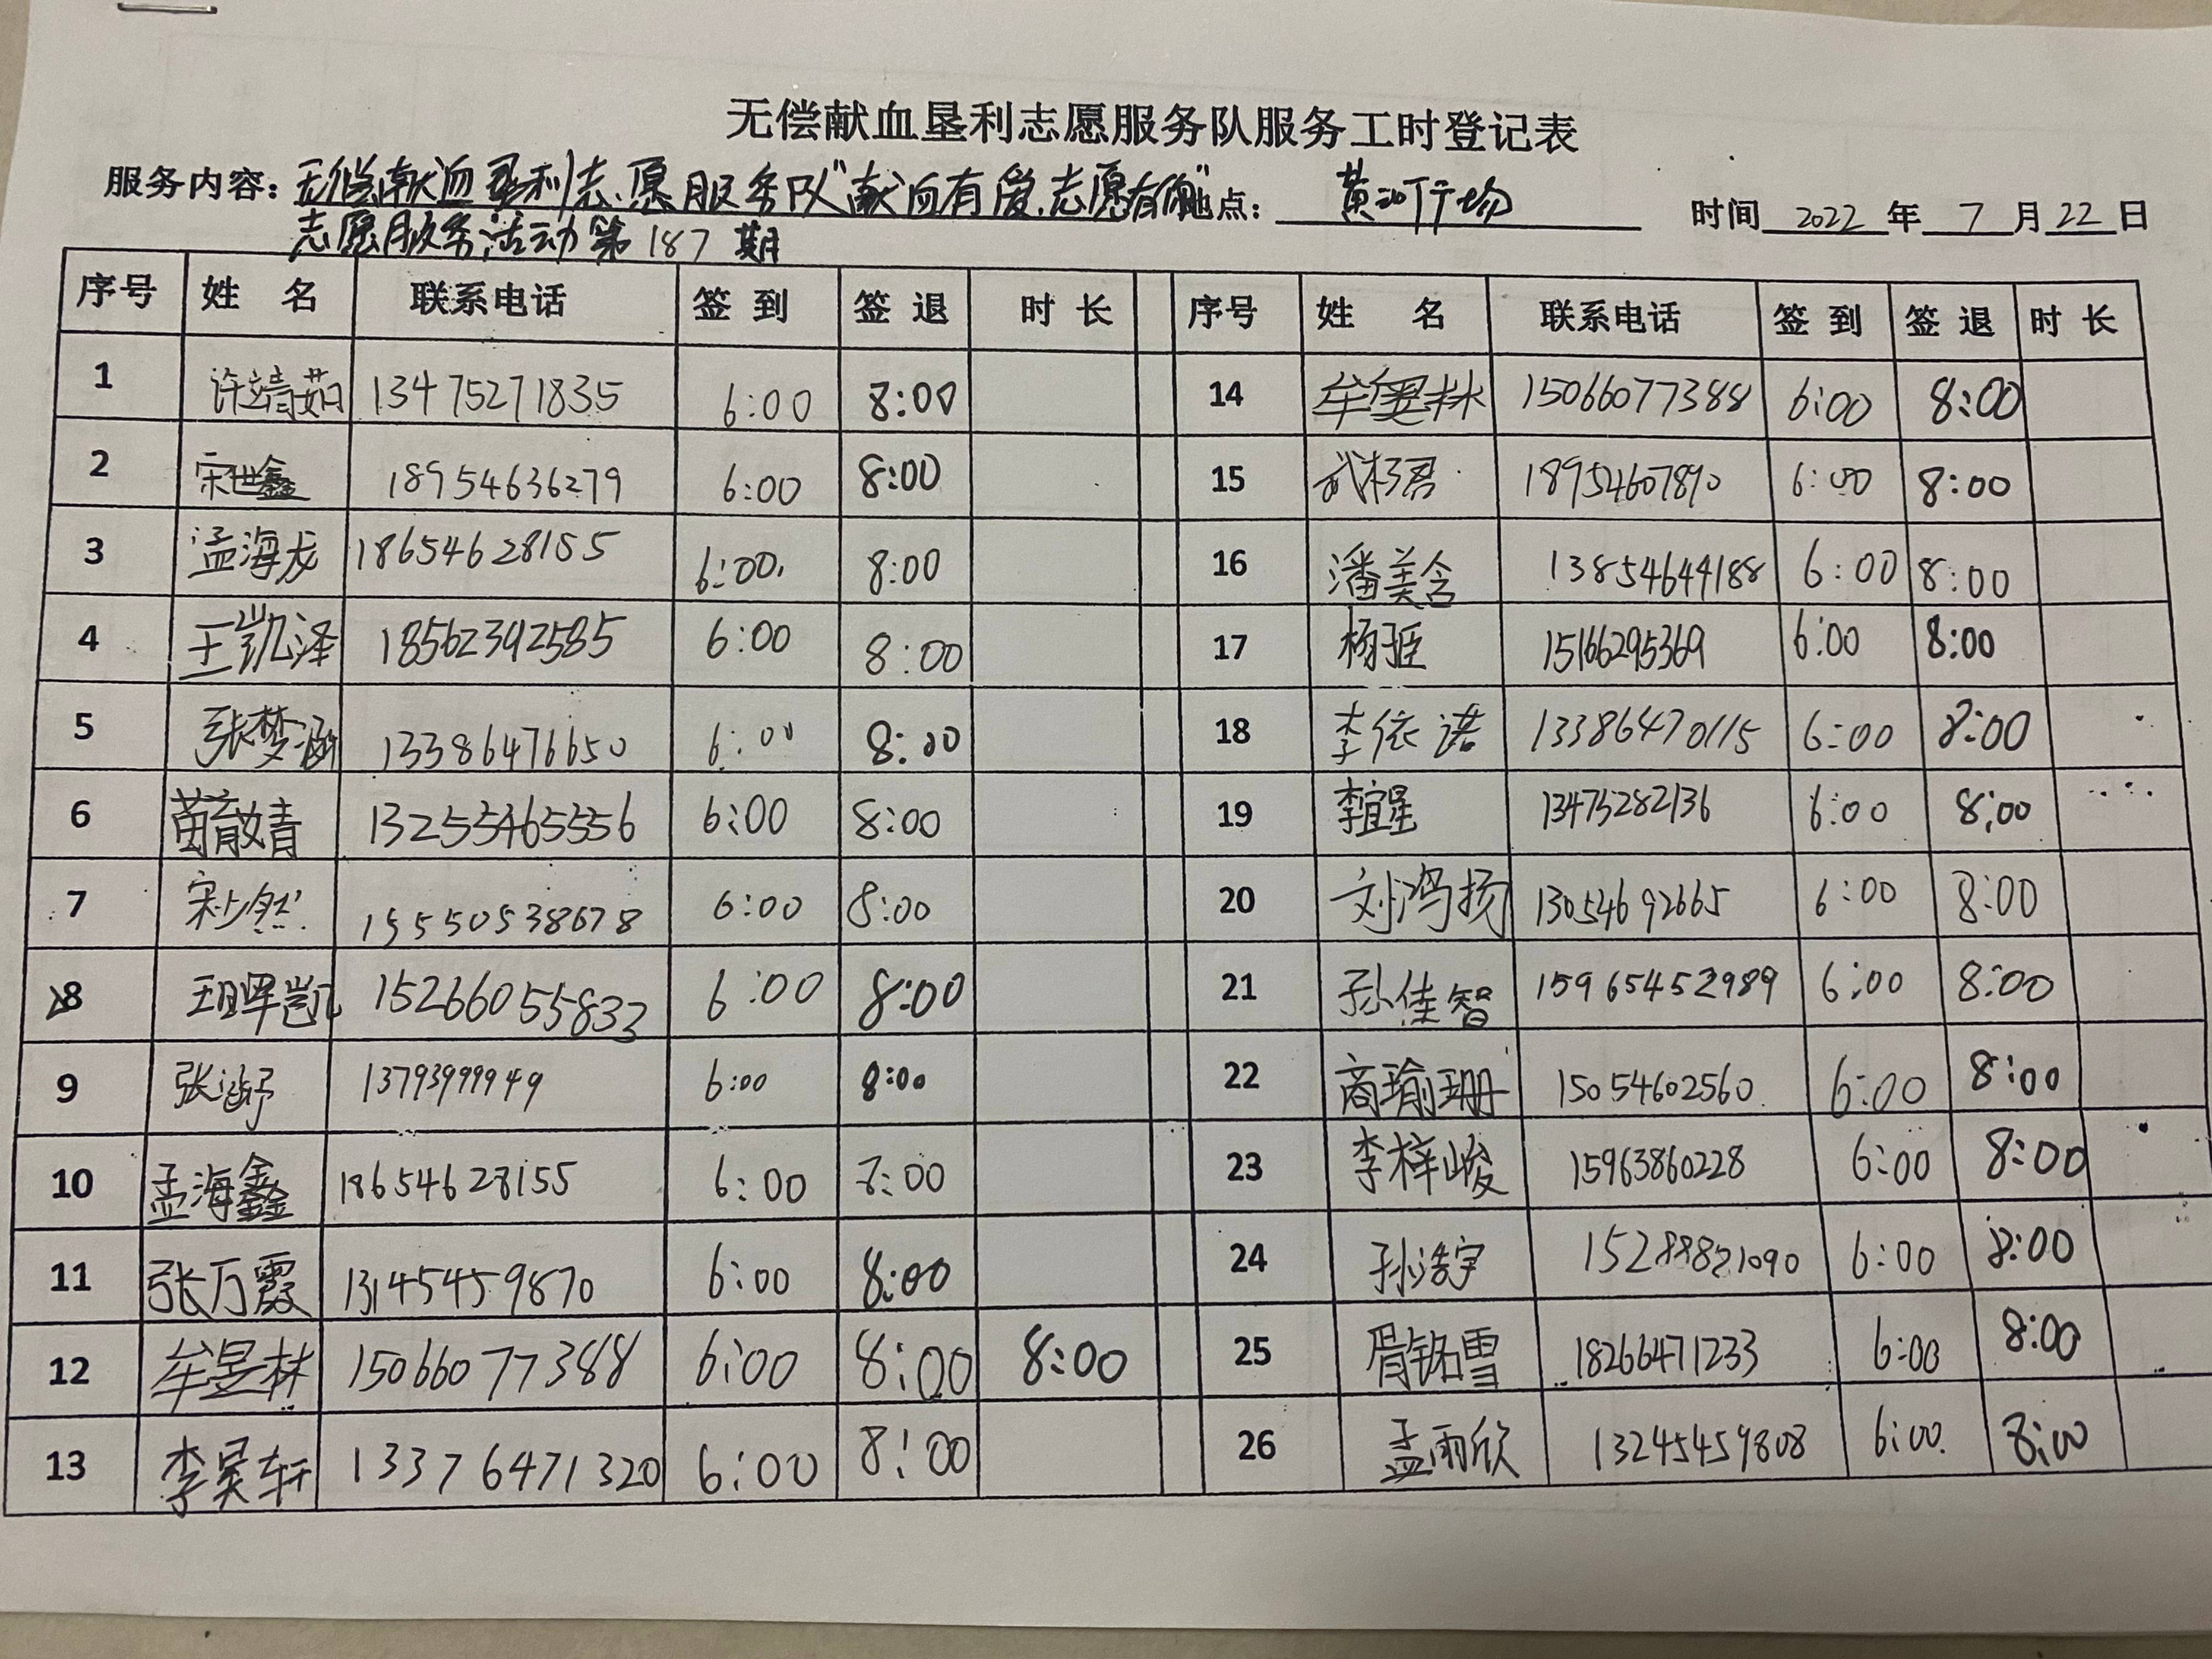 无偿献血垦利志愿服务队服务工时登记表
服务内容：无偿献血垦利志愿服务队“献血有爱.志愿有你” 地点： 黄河广场 时间 2022 年 7 月 22 日
志愿服务活动第 187 期
序号 姓 名 联系电话 签 到 签 退 时 长 序号 姓 名 联系电话 签 到 签 退 时 长
1 许靖茹 13475271835 6:00 8:00 14 牟奥林 15066077388 6:00 8:00
2 宋世鑫 18954636279 6:00 8:00 15 18954607890 6:00 8:00
3 孟海龙 18654628155 6:00 8:00 16 潘美含 13854644188 6:00 8:00
4 王凯泽 18562392585 6:00 8:00 17 15166295369 6:00 8:00
5 张梦涵 13386476650 6:00 8:00 18 李依诺 13386470115 6:00 8:00
6 苗毓婧 13255465556 6:00 8:00 19 李宜星 13475282136 6:00 8:00
7 宋少然 15550538678 6:00 8:00 20 刘鸿扬 13054692665 6:00 8:00
8 15266055833 6:00 8:00 21 孙佳智 15965452989 6:00 8:00
9 张涵予 13793999949 6:00 8:00 22 商瑜珊 15054602560 6:00 8:00
10 孟海鑫 18654628155 6:00 8:00 23 李梓峻 15963860228 6:00 8:00
11 张万霞 13145459870 6:00 8:00 24 孙浩宇 15288821090 6:00 8:00
12 牟昱林 15066077388 6:00 8:00 8:00 25 胥铭雪 18266471233 6:00 8:00
13 李昊轩 13376471320 6:00 8:00 26 孟雨欣 13245459808 6:00 8:00